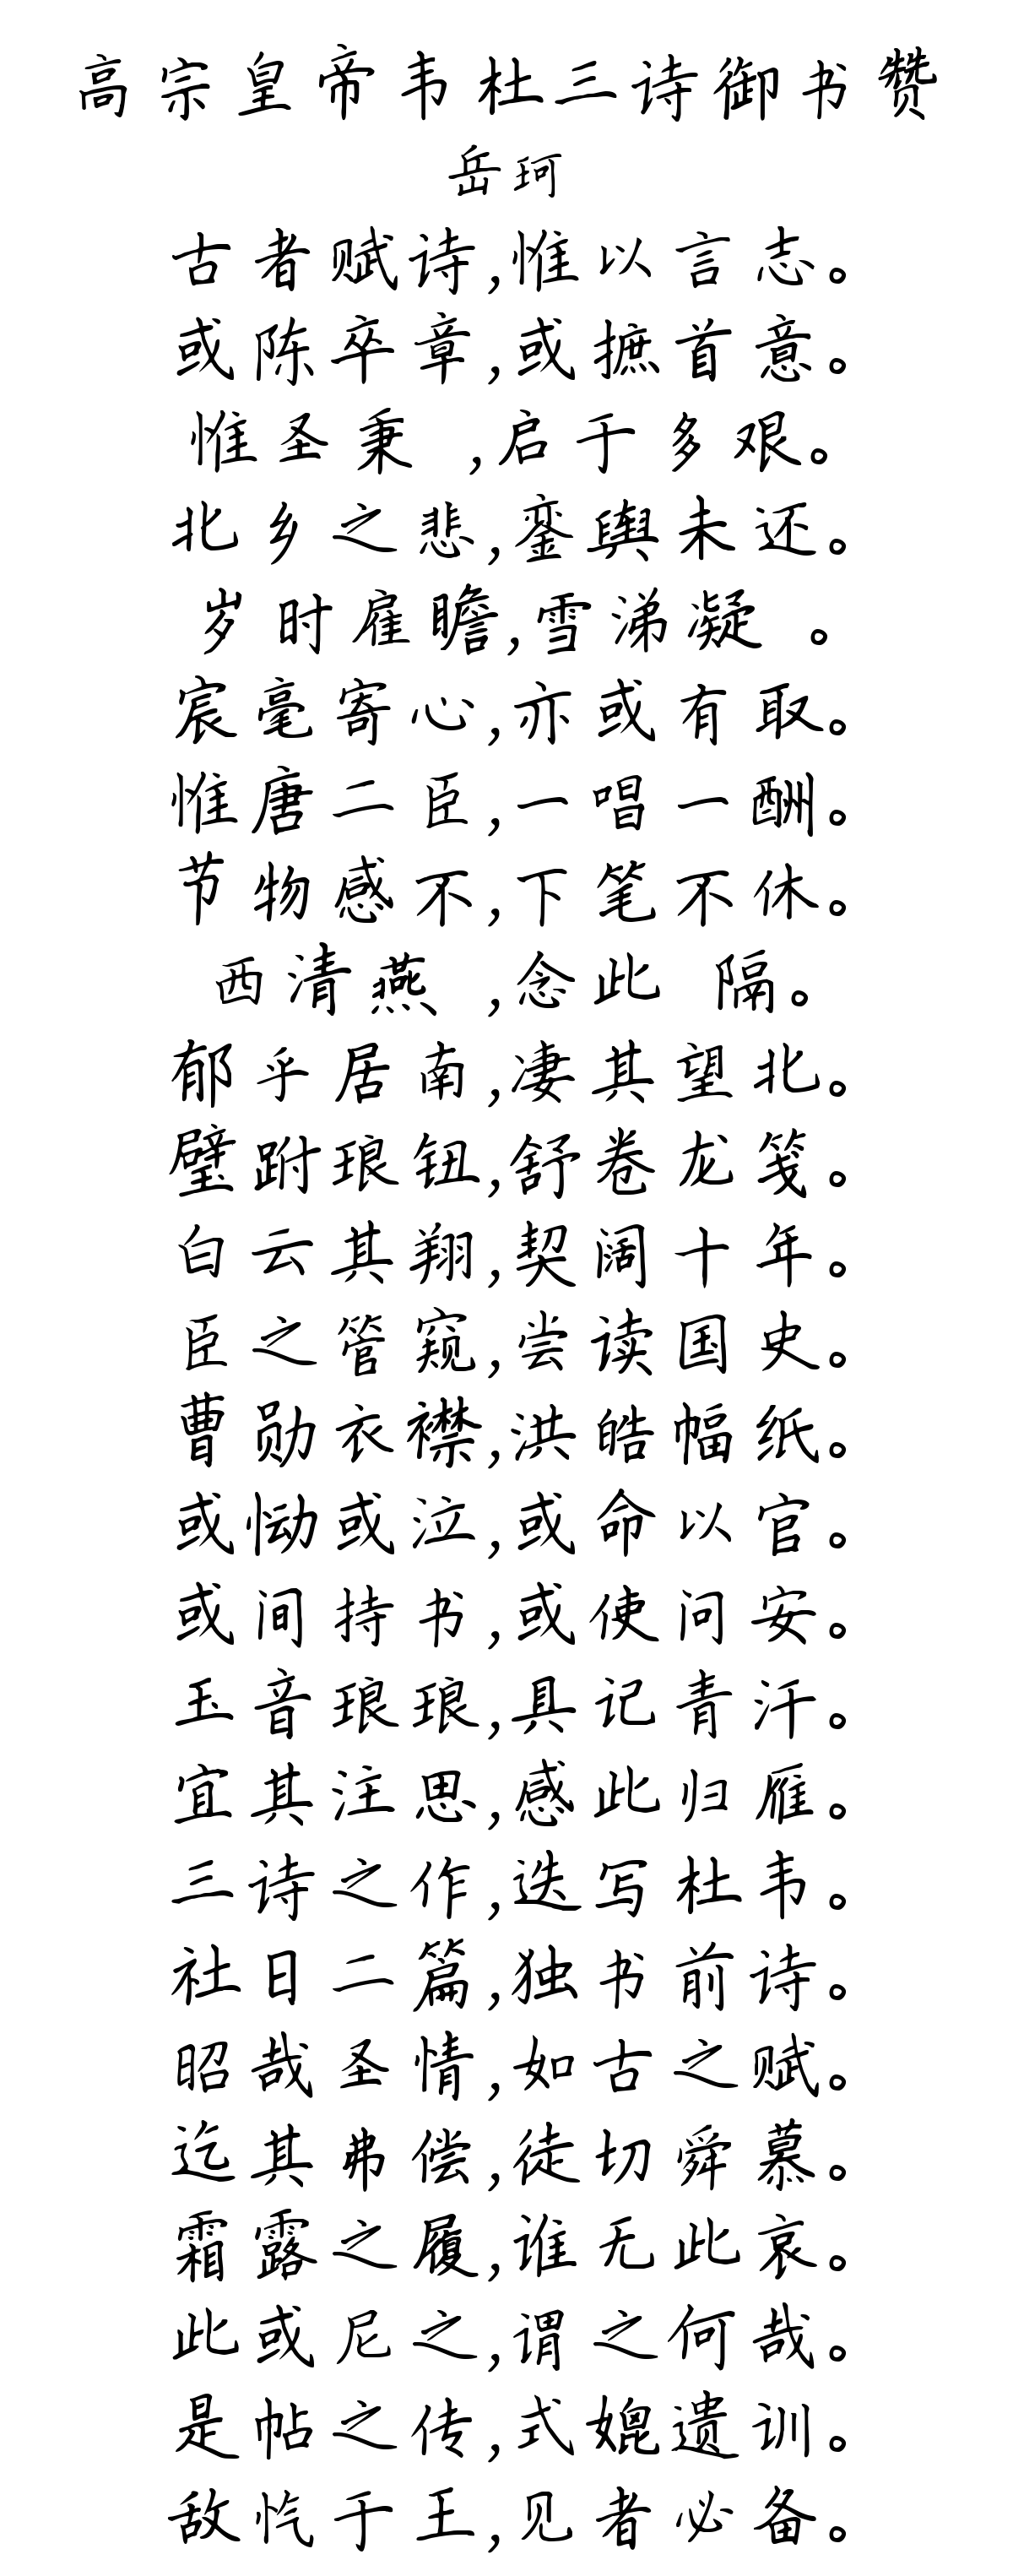 高宗皇帝韦杜三诗御书赞
岳珂
古者赋诗,惟以言志。
或陈卒章,或摭首意。
惟圣秉 ,启于多艰。
北乡之悲,銮舆未还。
岁时雇瞻,雪涕凝 。
宸毫寄心,亦或有取。
惟唐二臣,一唱一酬。
节物感不,下笔不休。
西清燕 ,念此 隔。
郁乎居南,凄其望北。
璧跗琅钮,舒卷龙笺。
白云其翔,契阔十年。
臣之管窥,尝读国史。
曹勋衣襟,洪皓幅纸。
或恸或泣,或命以官。
或间持书,或使问安。
玉音琅琅,具记青汗。
宜其注思,感此归雁。
三诗之作,迭写杜韦。
社日二篇,独书前诗。
昭哉圣情,如古之赋。
迄其弗偿,徒切舜慕。
霜露之履,谁无此哀。
此或尼之,谓之何哉。
是帖之传,式媲遗训。
敌忾于王,见者必备。